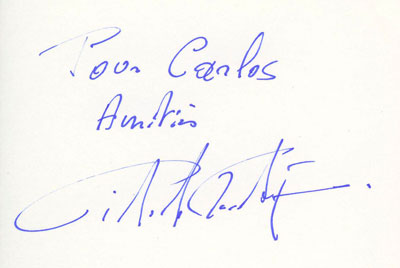 Pour Carlos
Amitiés